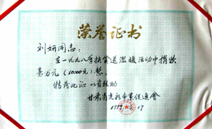 荣誉证书
刘妍同志:
在一九九八年扶贫送温暖活动中捐款
壹万元(10000元)整
特发此证 以资鼓励
甘肃省光彩事业促进会